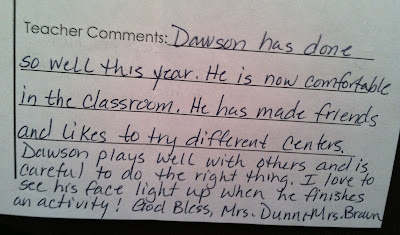 Teacher Comments: Dawson has done
so well this year. He is now comfortable
in the classroom. He has made friends
and likes to try different centers.
Dawson plays well with others and is
careful to do the right thing. I love to
see his face light up when he finishes
an activity! God Bless, Mrs. Dunn + Mrs. Braun